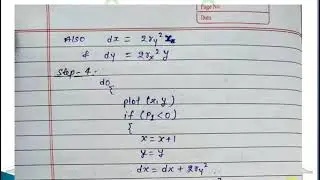 Page No.
Date
Also dx = 2ry² x
& dy = 2rx² y
Step-4.
do
{
plot (x,y)
if (P1<0)
{
x = x+1
y = y
dx = dx + 2ry²